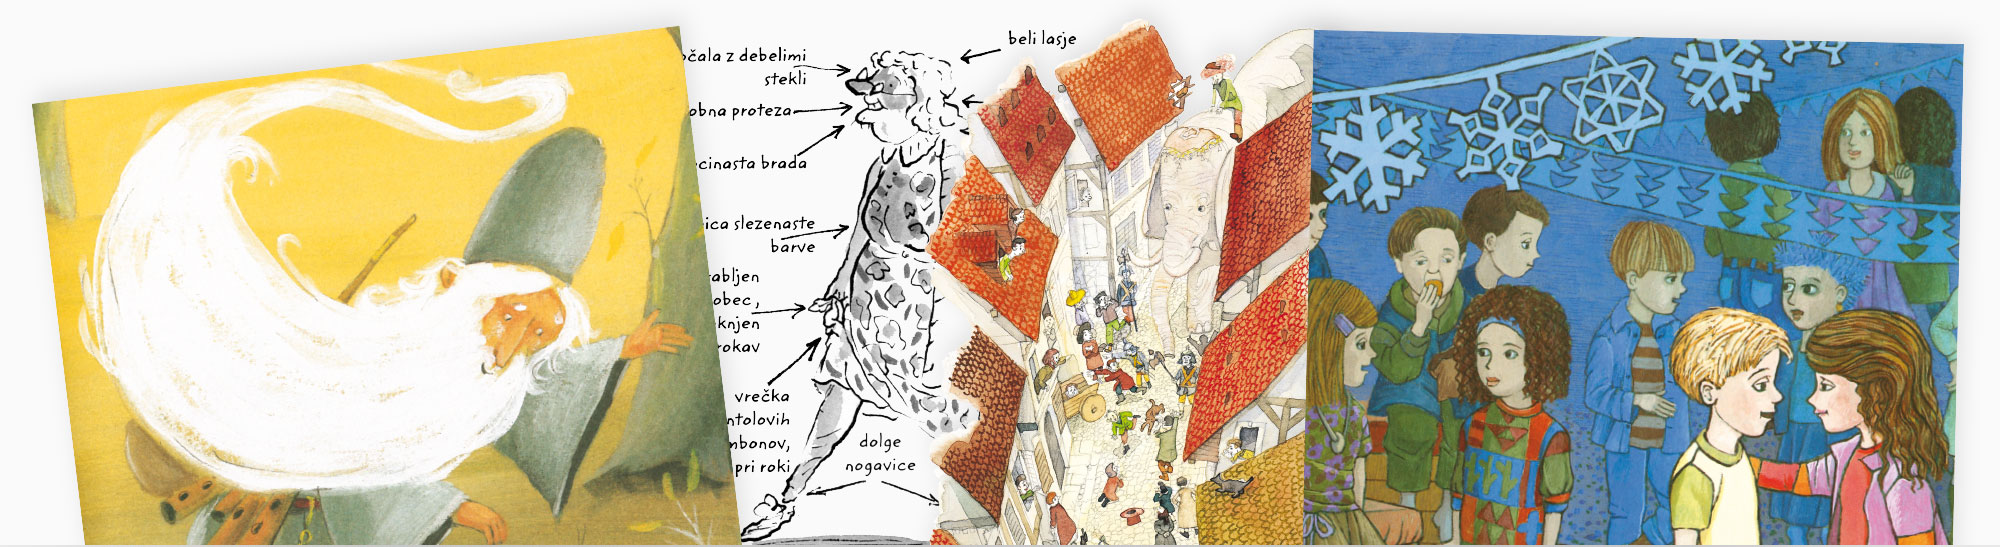 beli lasje
očala z debelimi
stekli
obna proteza
cinasta brada
ica slezenaste
barve
abljen
obec,
knjen
rokav
vrečka
ntolovih
mbonov,
pri roki
dolge
nogavice